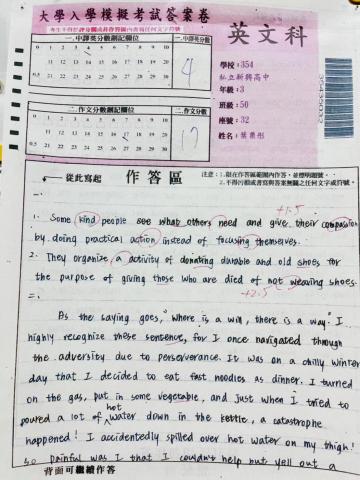 大學入學模擬考試答案卷
英文科
考生不得於評分欄或非作答區內書寫任何文字符號
一.中譯英分數劃記欄位
一.中譯英分數
0 1 2 3 4 5 6 7 8 9
0 10 20 30
0.5
4
二.作文分數劃記欄位
二.作文分數
0 1 2 3 4 5 6 7 8 9
0 10 20 30
0.5
17
學校:354
私立新興高中
年級:3
班級:50
座號:32
姓名:葉
從此寫起
作答區
注意:1.限在作答區範圍內作答,並標明題號。
2.不得污損或書寫與答案無關之任何文字或符號。
一.
+1.5
1. Some kind people see what others need and give their compassion
by doing practical action instead of focusing themselves.
2. They organize a activity of donating durable and old shoes for
the purpose of giving those who are died of not wearing shoes.
+2.5
二.
As the saying goes, "Where is a will, there is a way." I
highly recognize these sentence, for I once navigated through
the adversity due to perseverance. It was on a chilly winter
day that I decided to eat fast noodles as dinner. I turned
on the gas, put in some vegetable, and just when I tried to
poured a lot of hot water down in the kettle, a catastrophe
happened! I accidentedly spilled over hot water on my thigh!
So painful was I that I couldn't help but yell out a
背面可繼續作答